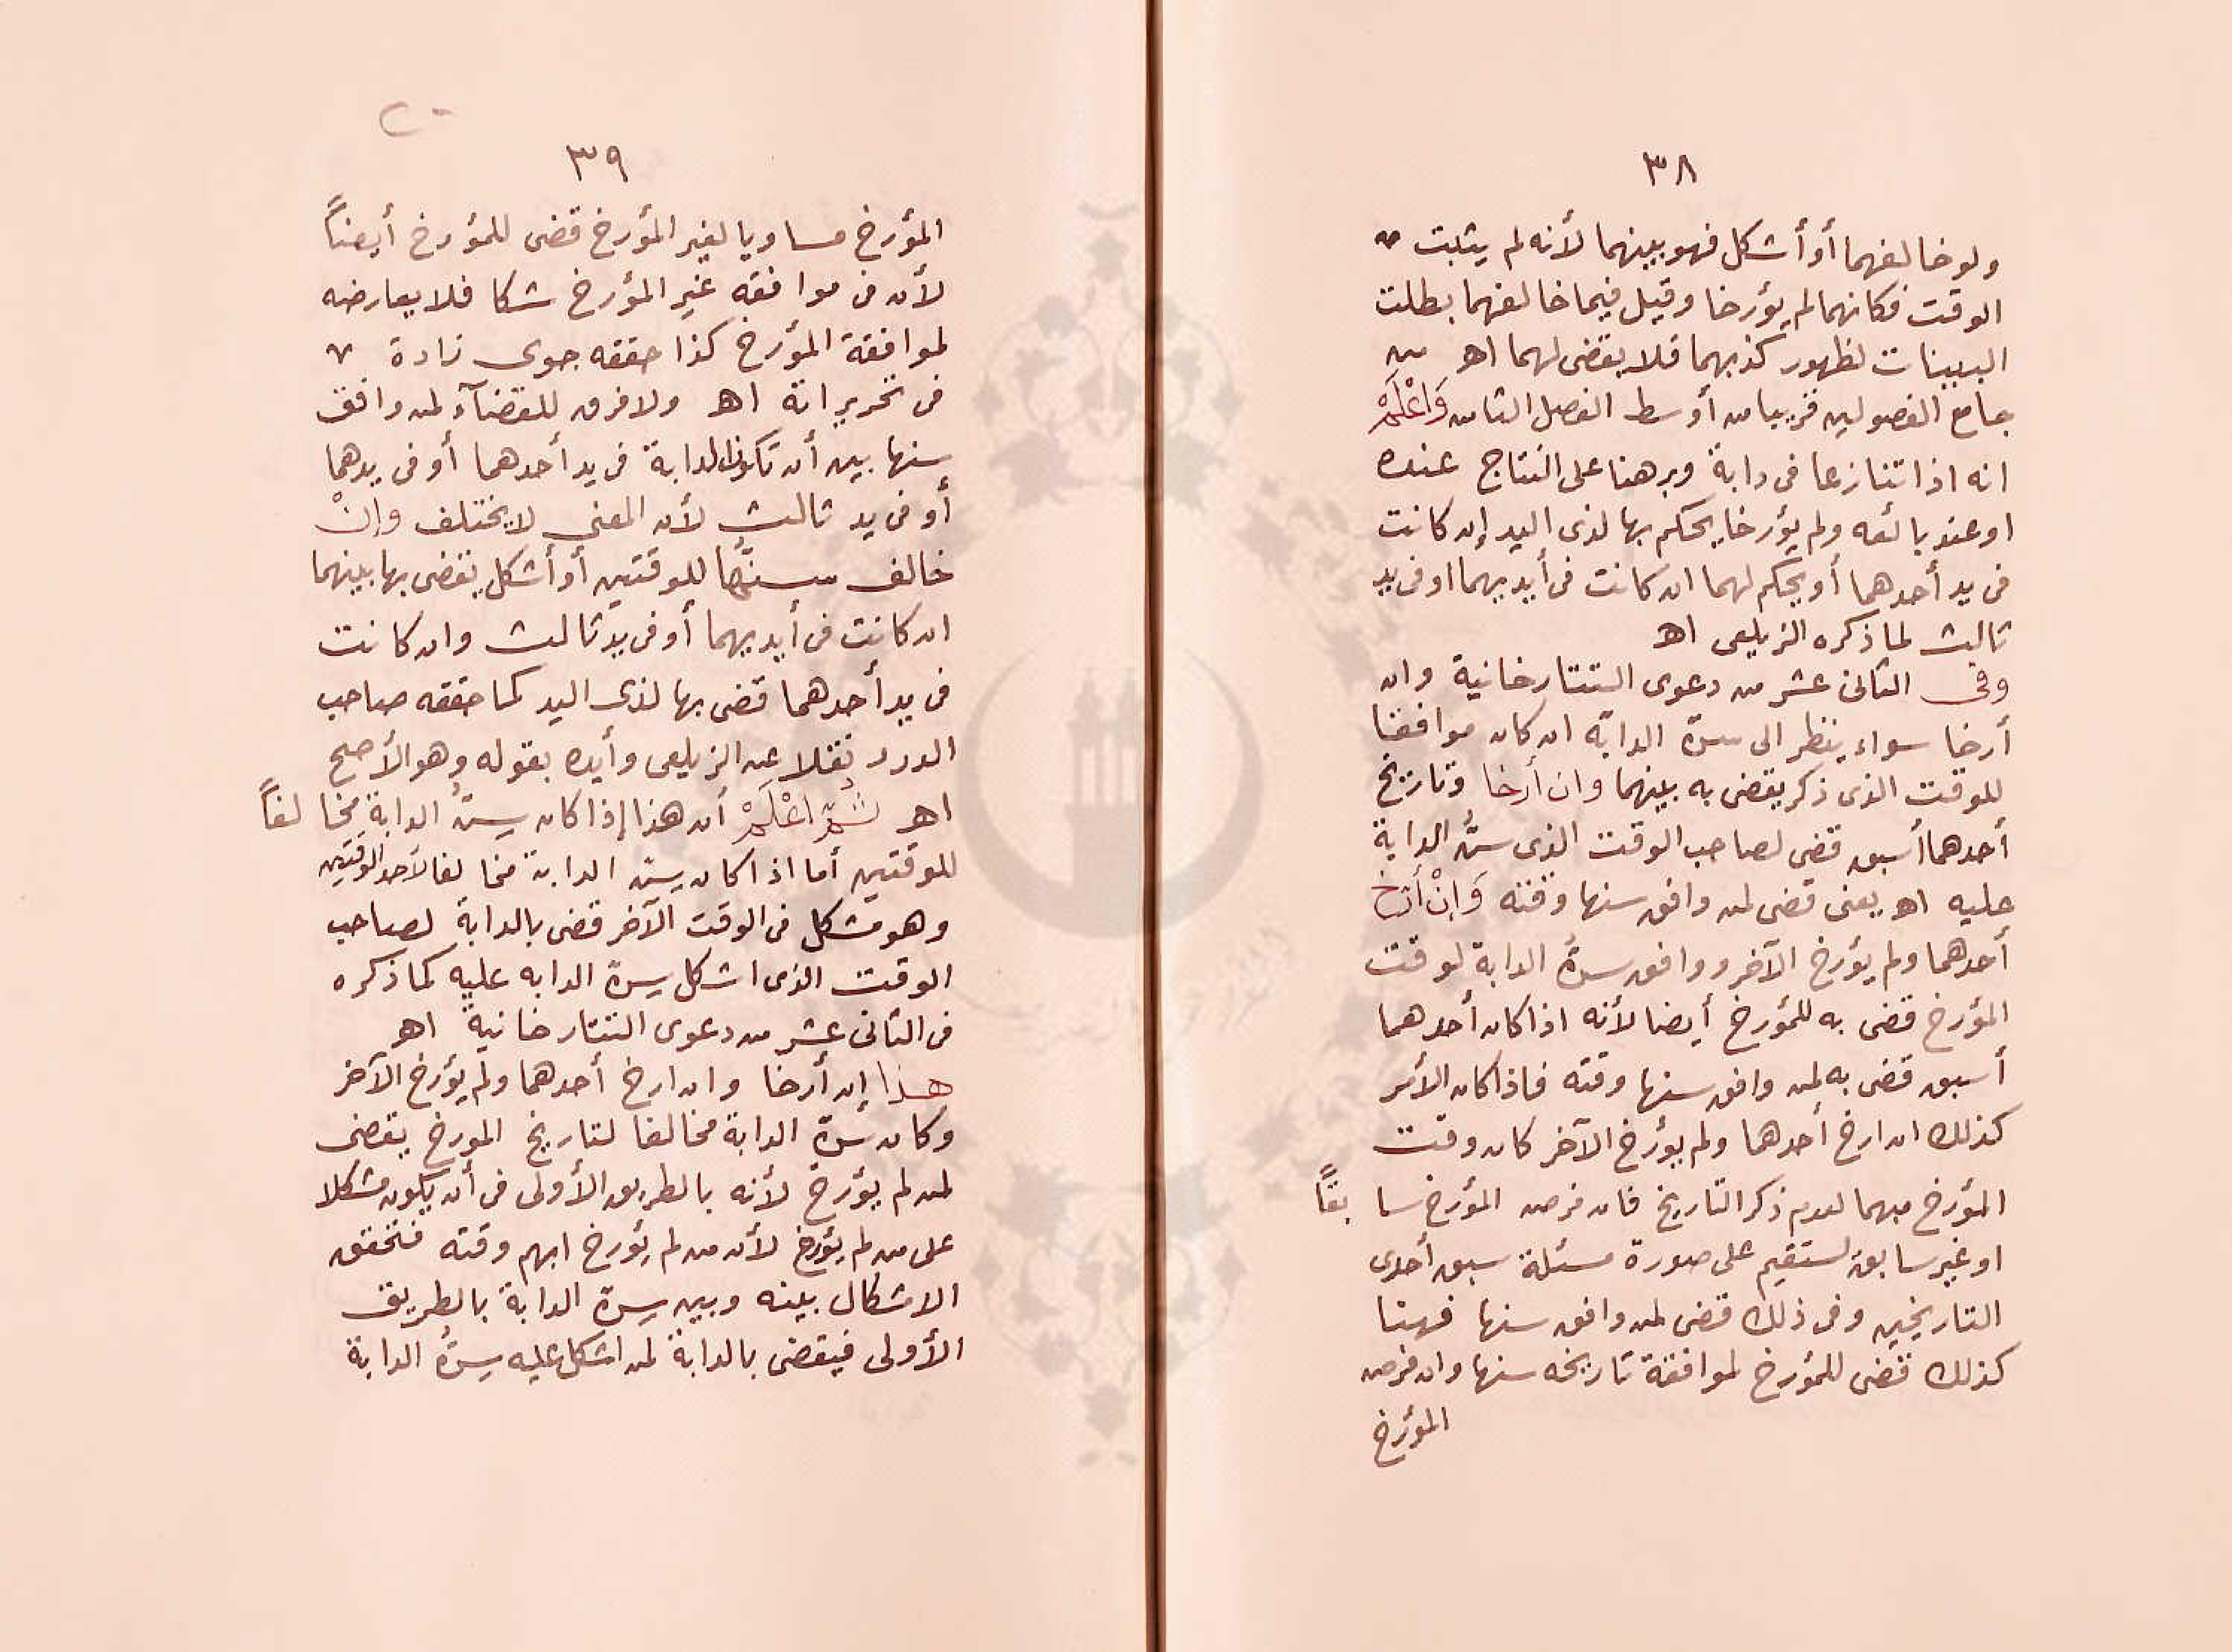 ٣٨
ولو خالفهما أو أشكل فهو بينهما لأنه لم يثبت
الوقت فكانهما لم يؤرخا وقيل فيما خالفهما بطلت
البينات لظهور كذبهما فلا يقضى لهما اهـ من
جامع الفصولين قريبا من أوسط الفصل الثامن وَاعْلَمْ
انه اذا تنازعا فى دابة وبرهنا على النتاج عنده
او عند بائعه ولم يؤرخا يحكم بها لذى اليد إن كانت
فى يد أحدهما أو يحكم لهما ان كانت فى أيديهما او فى يد
ثالث لما ذكره الزيلعى اهـ
وفى الثانى عشر من دعوى التتارخانية وان
أرخا سواء ينظر الى سنّ الدابة ان كان موافقا
للوقت الذى ذكر يقضى به بينهما وان أرخا وتاريخ
أحدهما أسبق قضى لصاحب الوقت الذى سنُّ الدابة
عليه اهـ يعنى قضى لمن وافق سنها وقته وَإِنْ أَرَّخَ
أحدهما ولم يؤرخ الآخر ووافق سنُّ الدابة لوقت
المؤرخ قضى به للمؤرخ أيضا لأنه اذا كان أحدهما
أسبق قضى به لمن وافق سنها وقته فاذا كان الأمر
كذلك ان ارخ أحدهما ولم يؤرخ الآخر كان وقت
المؤرخ مبهما لعدم ذكر التاريخ فان فرض المؤرخ سابقاً
او غير سابق لستقيم على صورة مسئلة سبق أحدى
التاريخين وفى ذلك قضى لمن وافق سنها فهنا
كذلك قضى للمؤرخ لموافقة تاريخه سنها وان فرض
المؤرخ
٣٩
المؤرخ مساويا لغير المؤرخ قضى للمؤرخ أيضاً
لأن فى موافقة غير المؤرخ شكا فلا يعارضه
لموافقة المؤرخ كذا حققه جوى زادة
فى تحريراته اهـ ولا فرق للقضآء لمن وافق
سنها بين أن تكون الدابة فى يد أحدهما أو فى يدهما
أو فى يد ثالث لأن المعنى لا يختلف وإنْ
خالف سنُّها للوقتين أو أشكل يقضى بها بينهما
ان كانت فى أيديهما أو فى يد ثالث وان كانت
فى يد أحدهما قضى بها لذى اليد كما حققه صاحب
الدرر نقلا عن الزيلعى وأيده بقوله وهو الأصح
اهـ ثُمَّ اعْلَمْ أن هذا إذا كان سنُّ الدابة مخالفاً
للوقتين أما اذا كان سنّ الدابة مخالفا لأحد الوقتين
وهو مشكل فى الوقت الآخر قضى بالدابة لصاحب
الوقت الذى اشكل سنّ الدابه عليه كما ذكره
فى الثانى عشر من دعوى التتارخانية اهـ
هذا إن أرخا وان ارخ أحدهما ولم يؤرخ الآخر
وكان سنّ الدابة مخالفا لتاريخ المورخ يقضى
لمن لم يؤرخ لأنه بالطريق الأولى فى أن يكون مشكلا
على من لم يؤرخ لأن من لم يؤرخ ابهم وقته فتحقق
الاشكال بينه وبين سنّ الدابة بالطريق
الأولى فيقضى بالدابة لمن اشكل عليه سنُّ الدابة